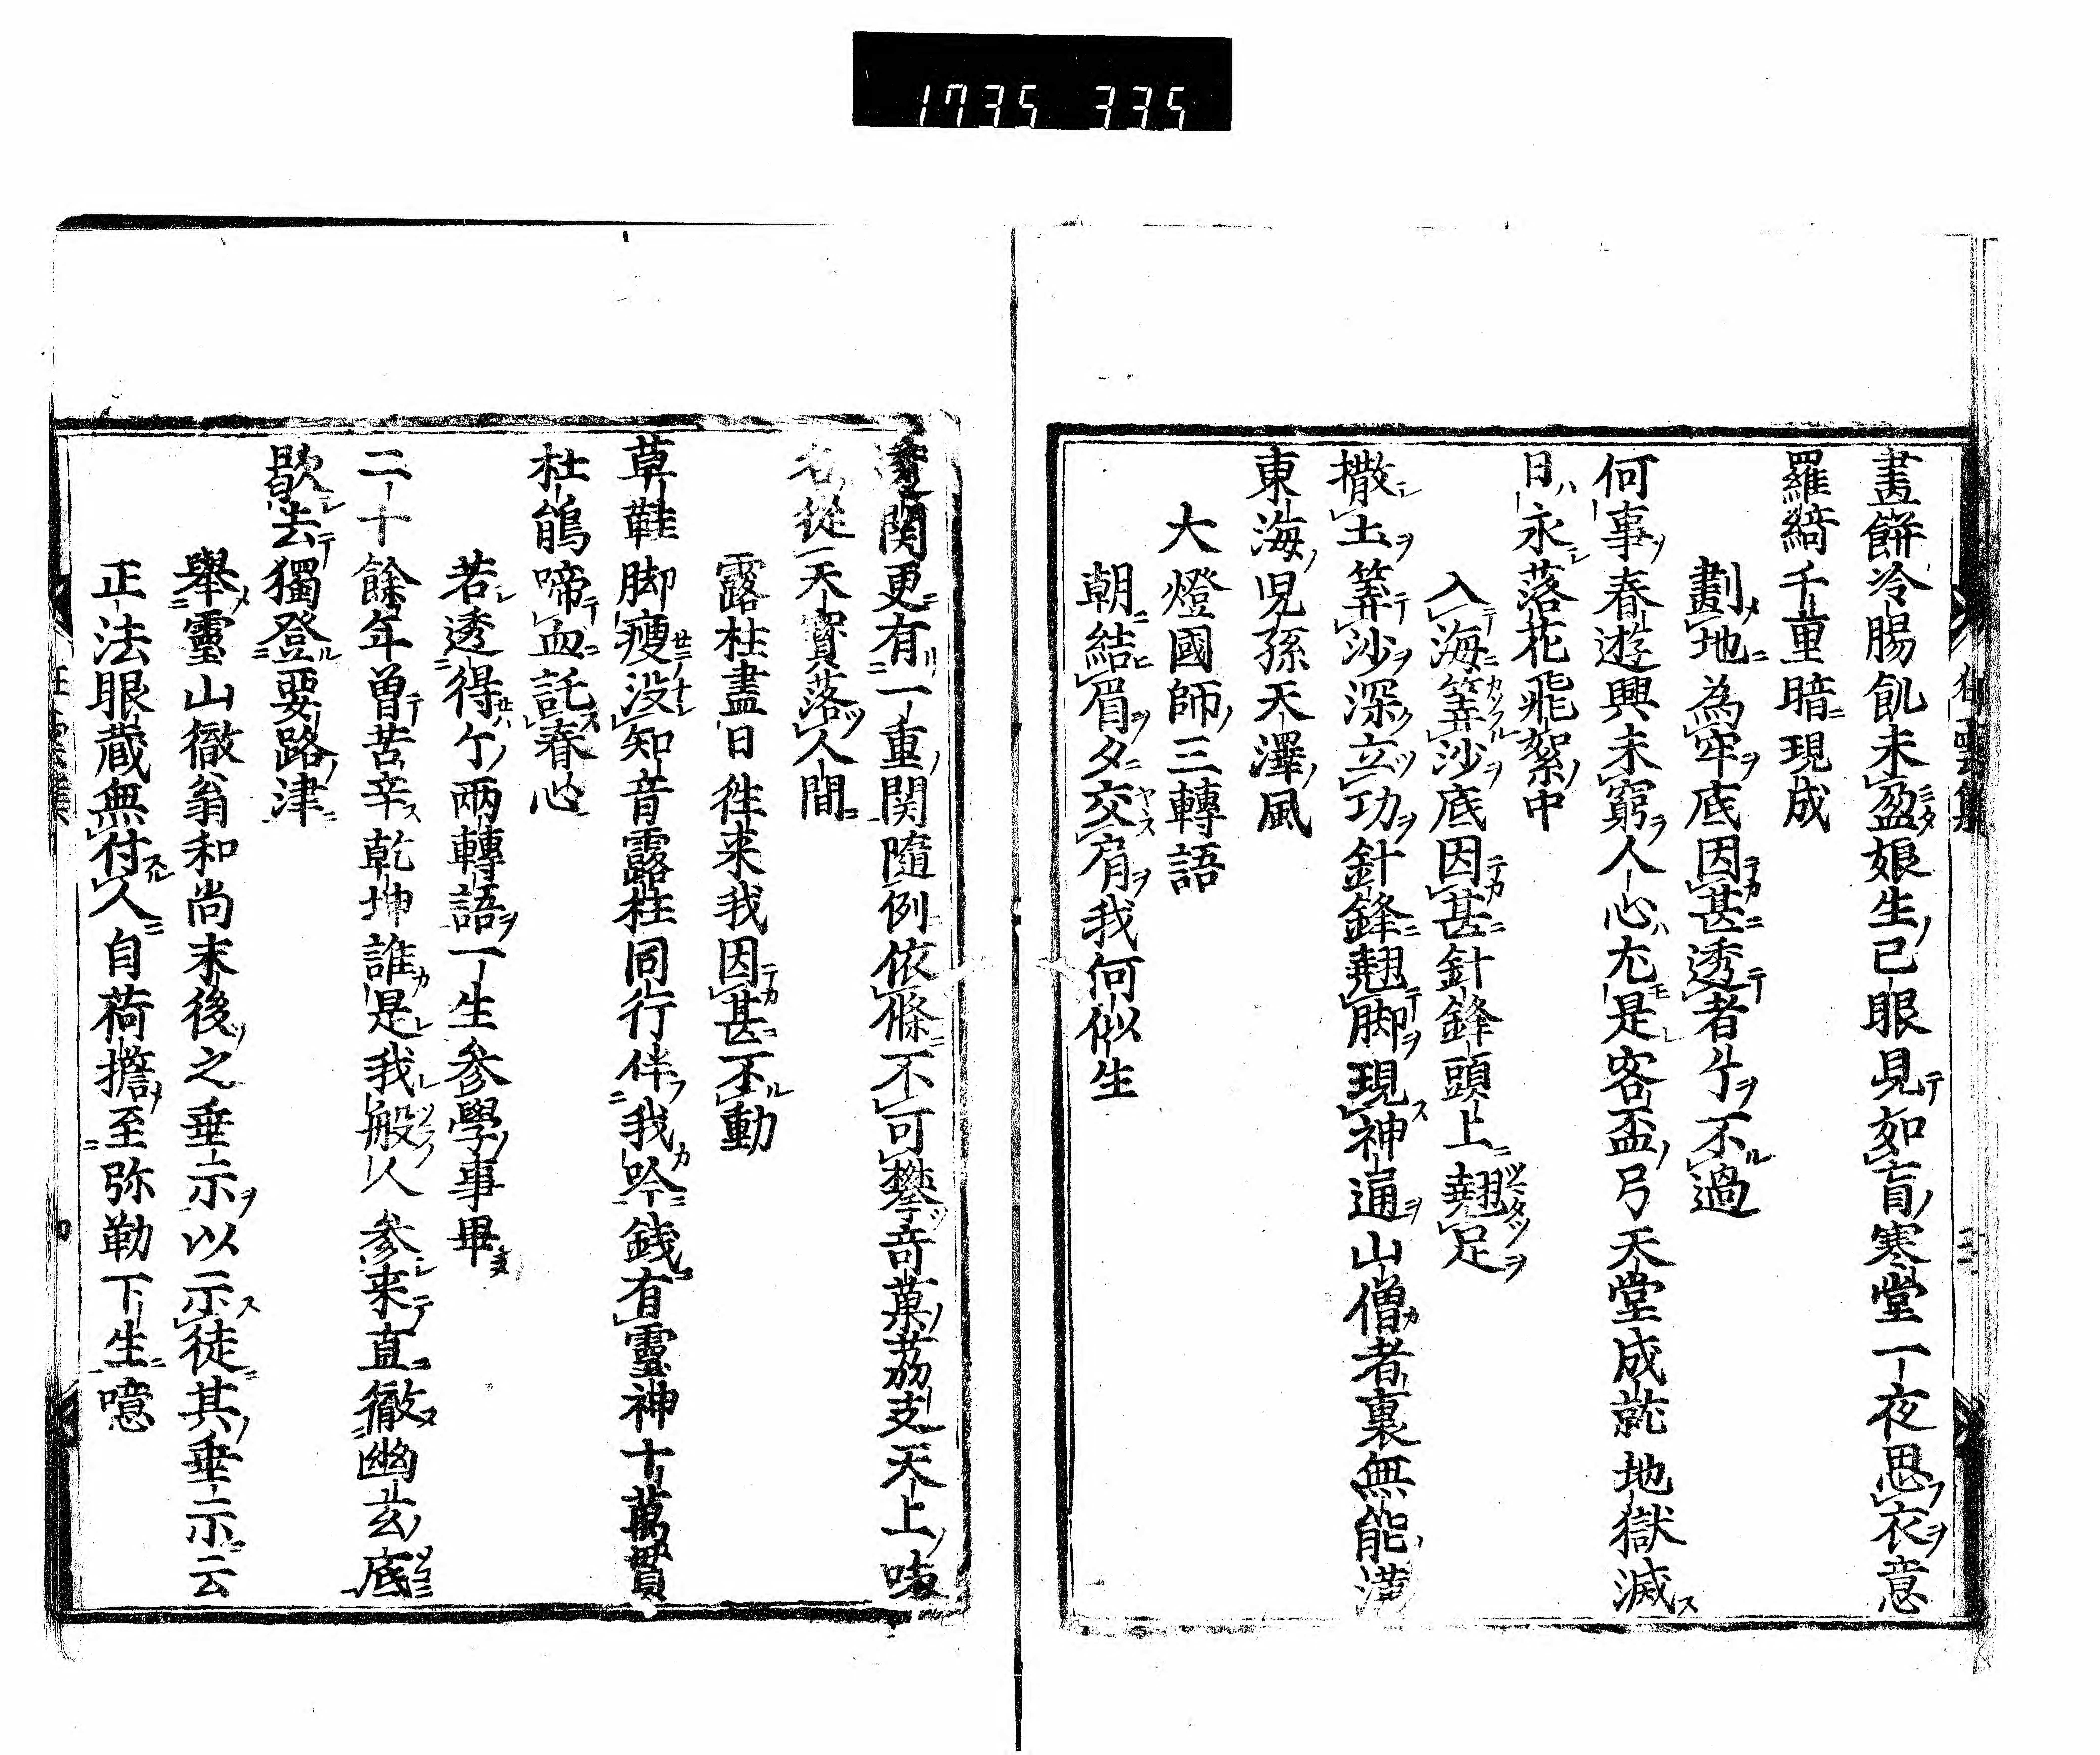 1735 335
畫餅冷腸飢未盈娘生已眼見如盲寒堂一夜思衣意
羅綺千重暗現成
劃地為牢底因甚透者个不過
何事春遊興未窮人心尤是客盃弓天堂成就地獄滅
日永落花飛絮中
入海筭沙底因甚針鋒頭上翹足
撒土筭沙深立功針鋒翹脚現神通山僧者裏無能漢
東海児孫天澤風
大燈國師三轉語
朝結眉夕交肩我何似生
関更有一重関隨例依條不可攀奇菓茘支天上味
名從天寳落人間
露柱盡日徃来我因甚不動
草鞋脚瘦没知音露柱同行伴我吟錢有靈神十萬貫
杜鵑啼血託春心
若透得个両轉語一生参學事畢
二十餘年曽苦辛乾坤誰是我般人参来直徹幽玄底
歇去獨登要路津
舉靈山徹翁和尚末後之垂示以示徒其垂示云
正法眼蔵無付人自荷擔至弥勒下生噫